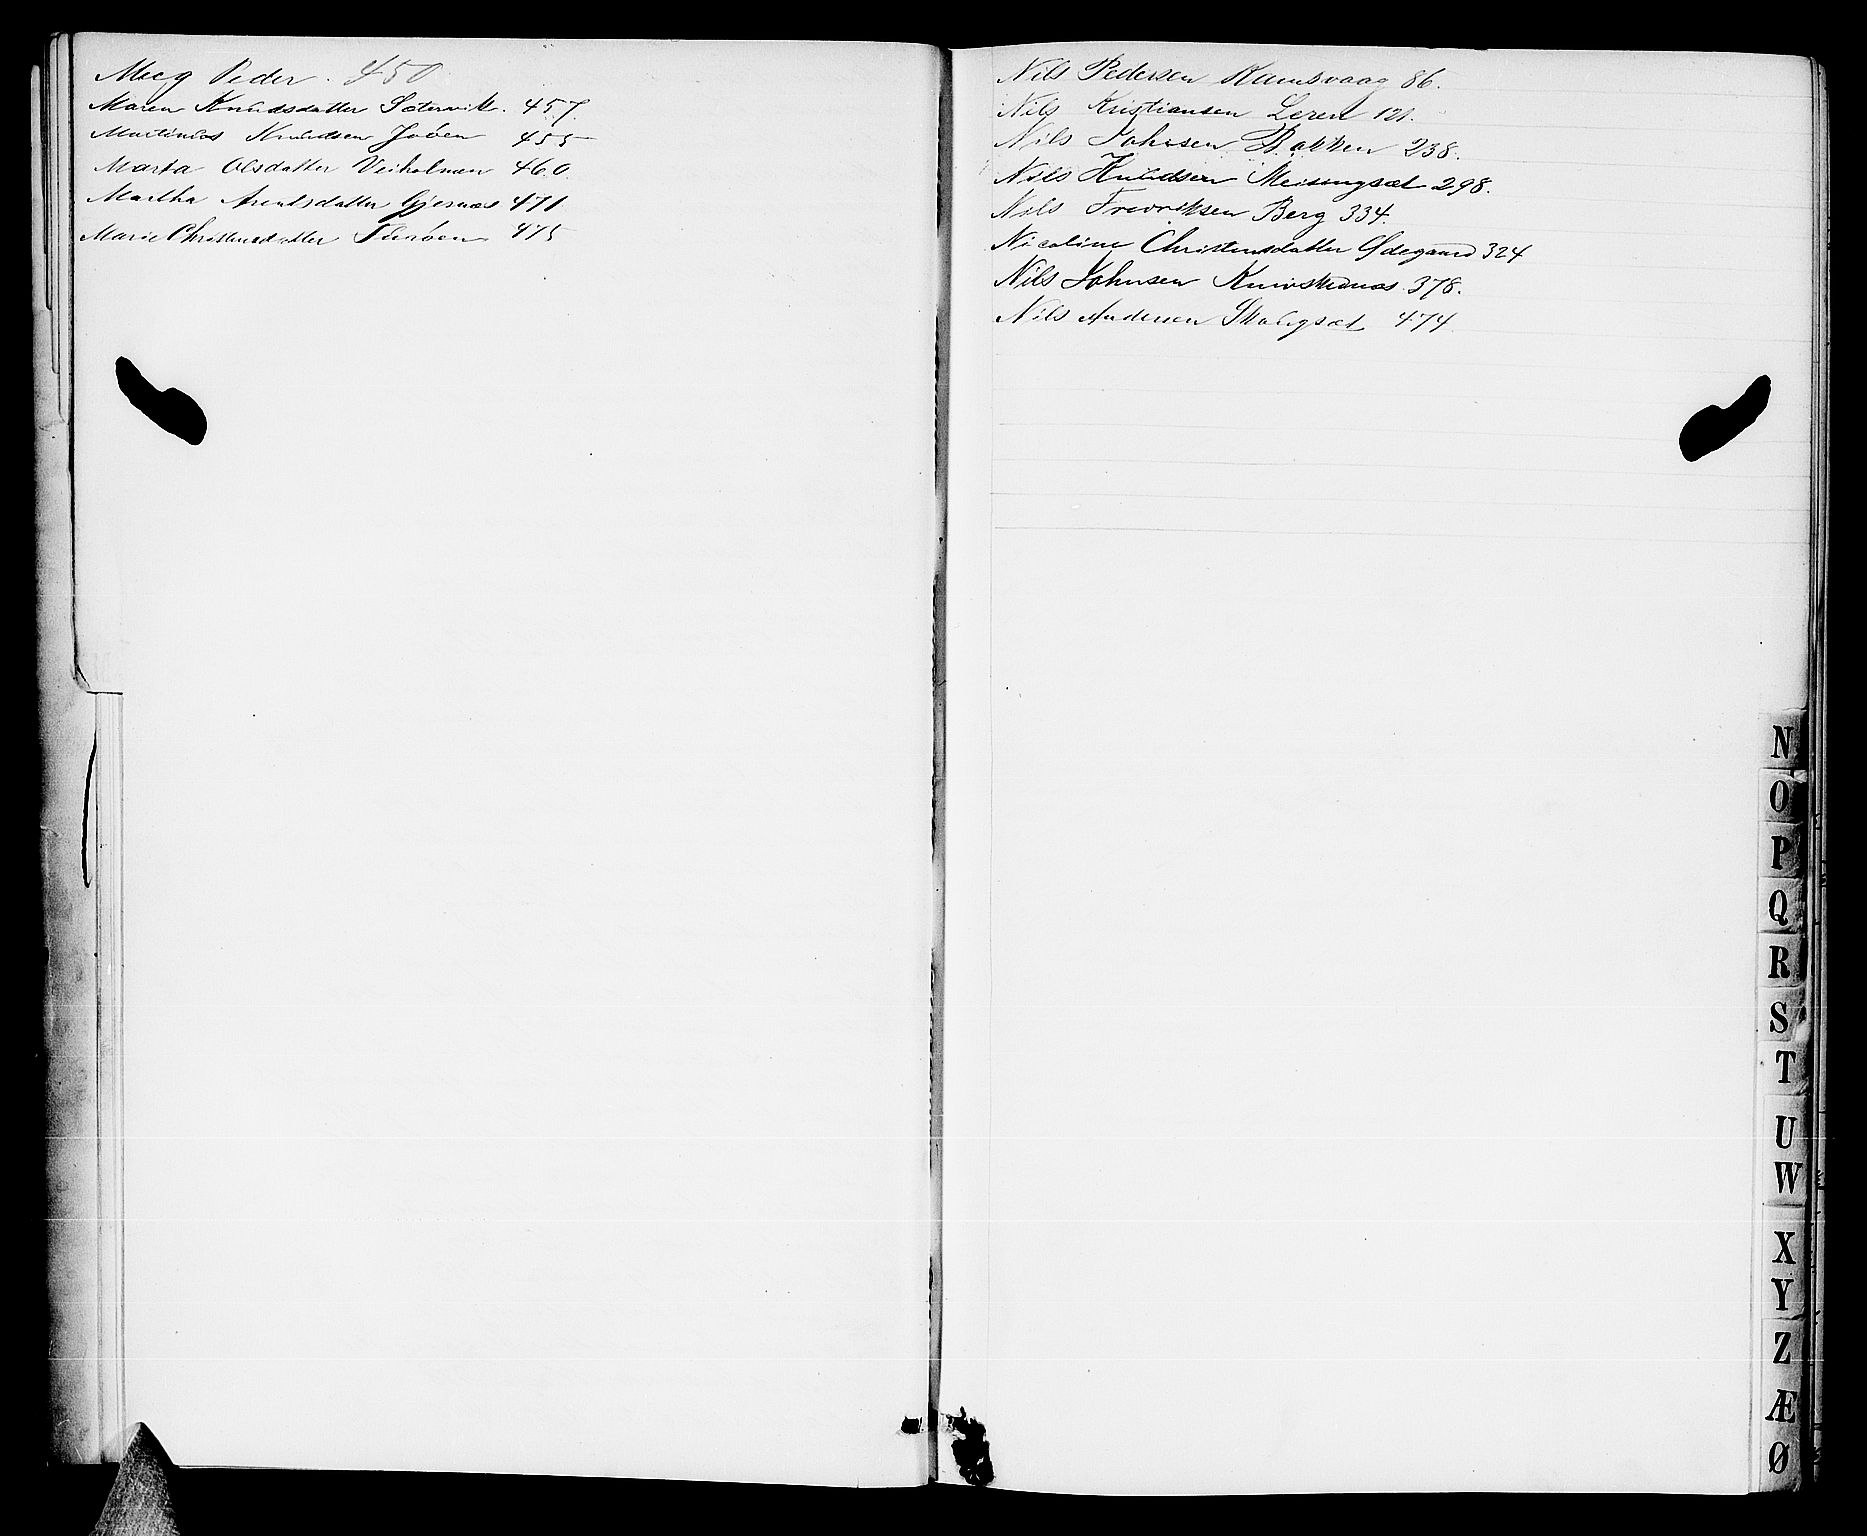 Peder. 450
Maren Knudsdatter Sætervik. 457.
Martinus Knudsen 455
Marta Olsdatter Veiholmen 460
Martha Arentsdatter Gjernæs 471
Marie Christensdatter 475
Nils Pedersen Ramsvaag 86.
Nils Kristiansen Leren 121.
Nils Johnsen Bakken 238.
Nils Knudsen Meisingset 298.
Nils Fredriksen Berg 334.
Nicoline Christensdatter Ødegaard 324
Nils Johnsen 378.
Nils Andersen Skougset 474
N
O
P
Q
R
S
T
U
W
X
Y
Z
Æ
Ø